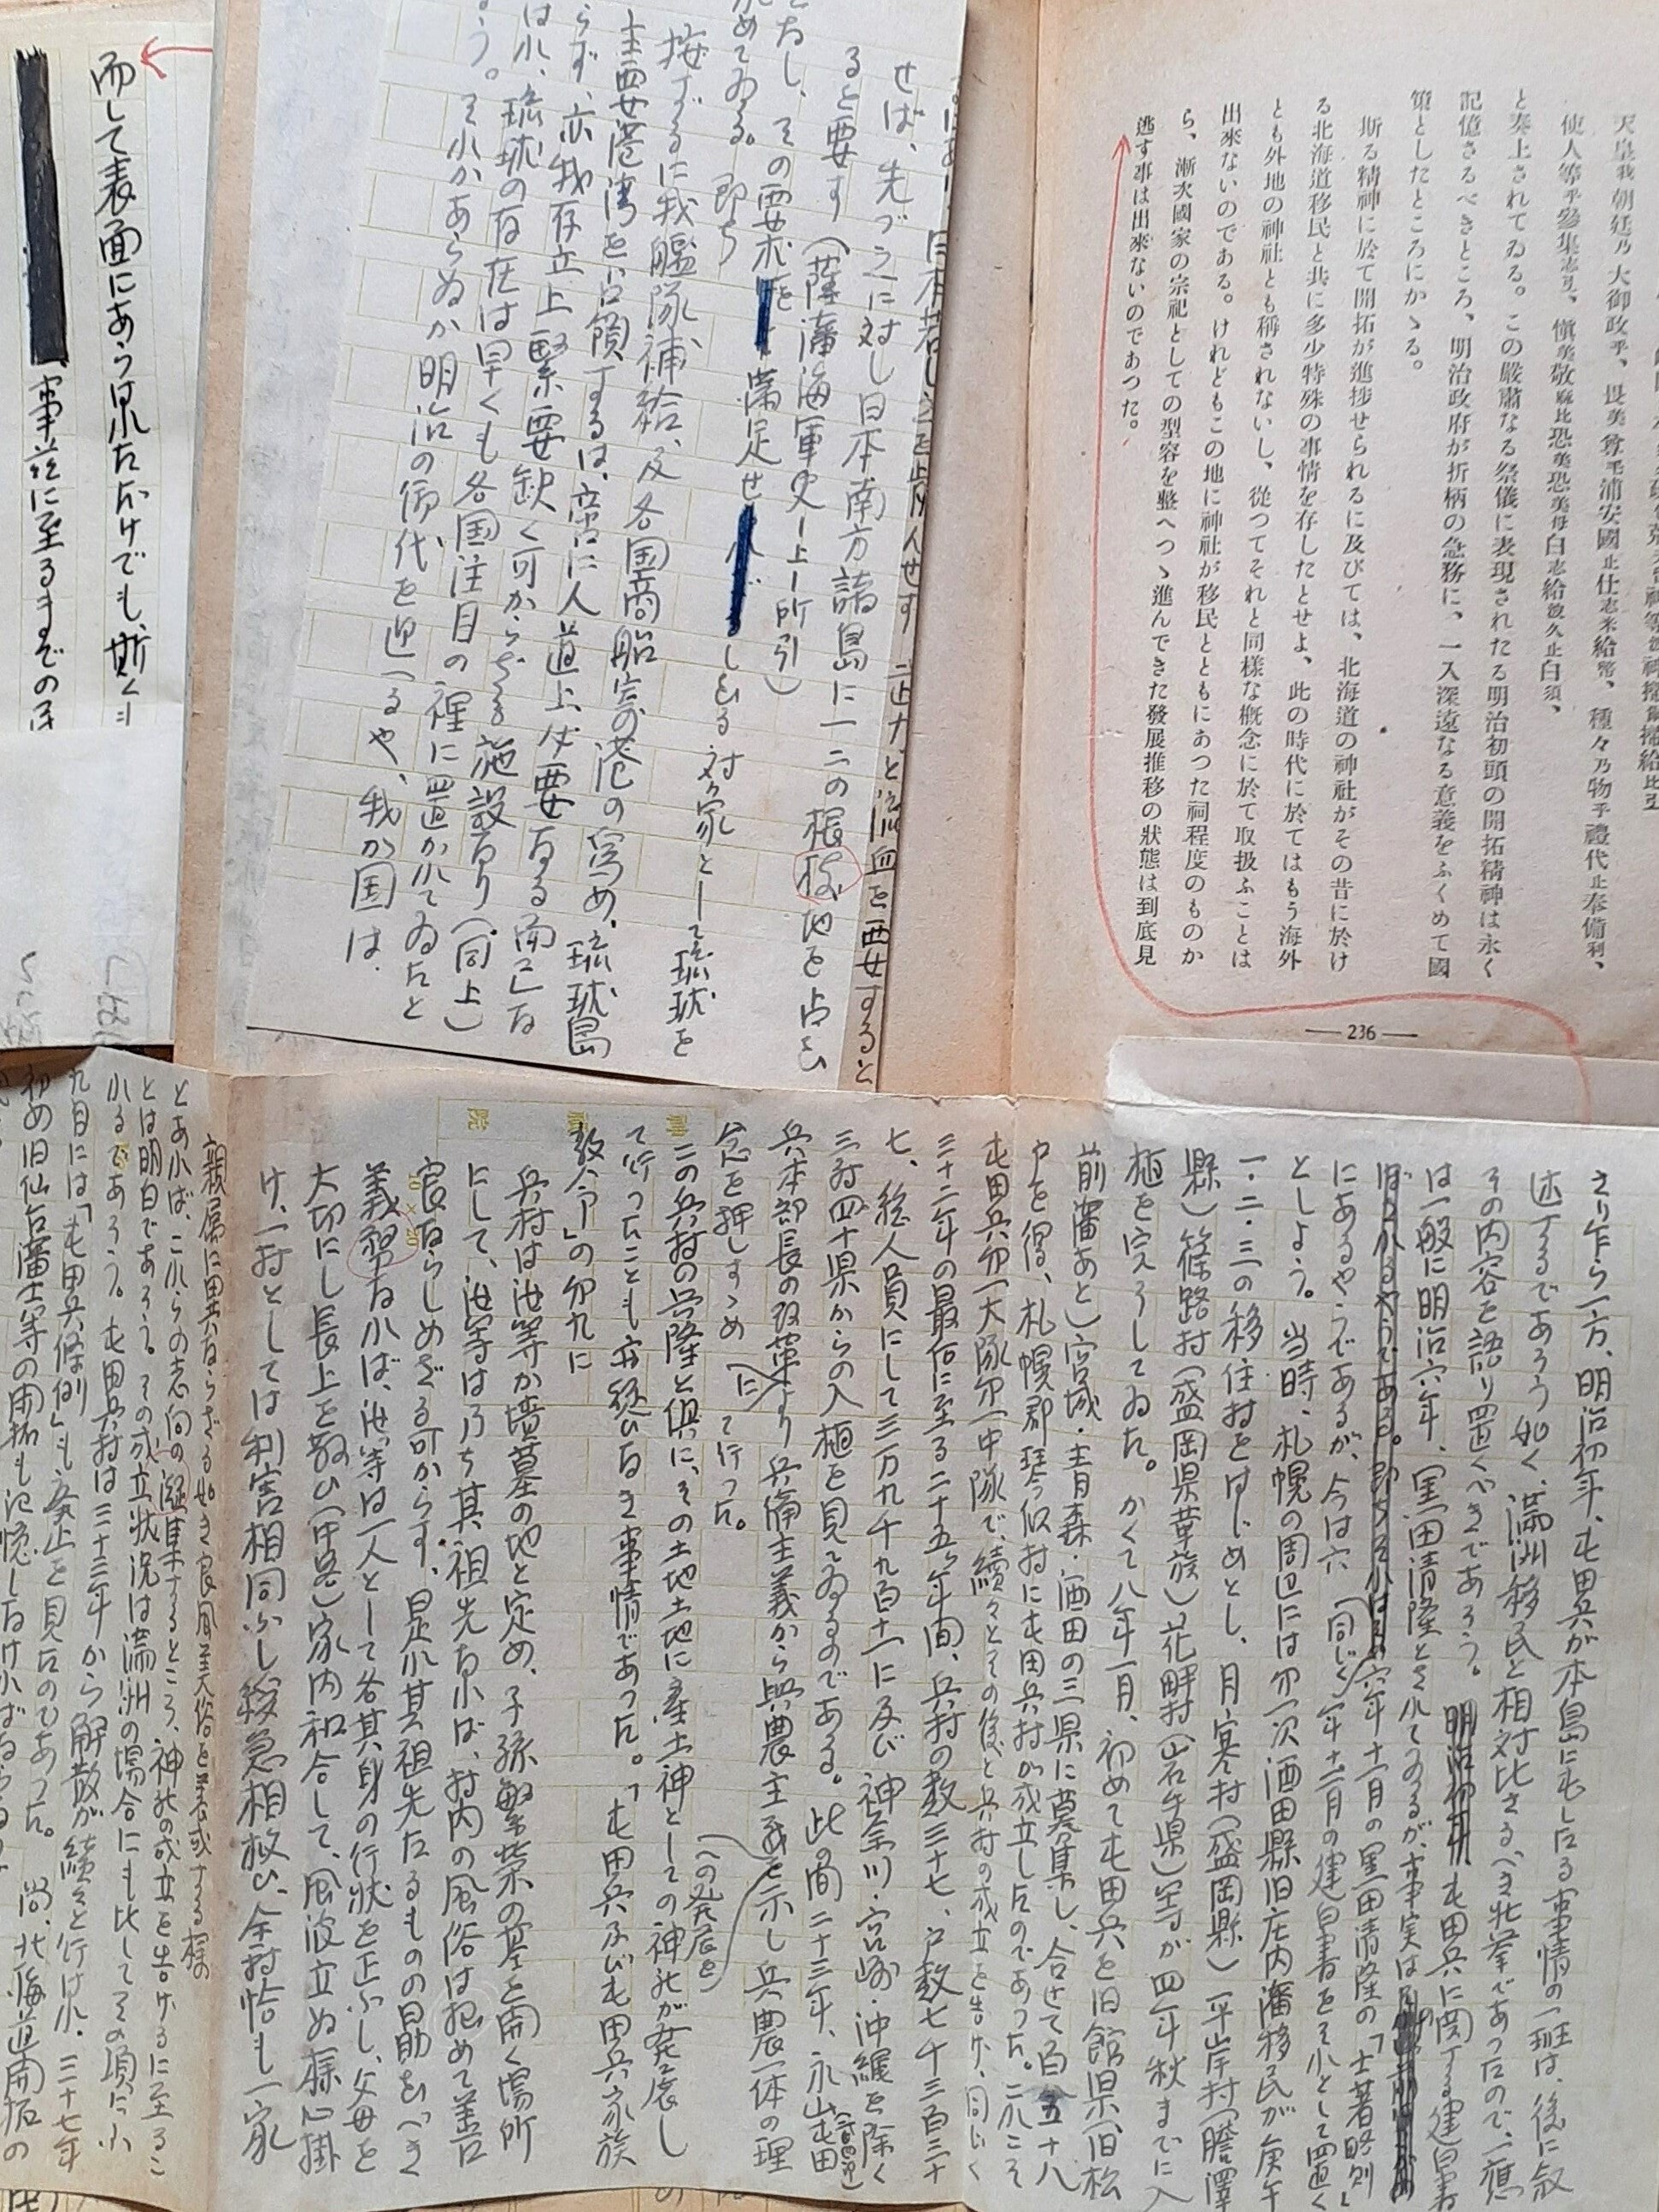 天皇我朝廷乃大御政乎、畏美尊美浦安國止仕志米給幣、種々乃物乎禮代止奉備利、
使人等乎參集志弖、愼美敬麻比恐美恐美毛白志給波久止白須、
と奏上されてゐる。この嚴肅なる祭儀に表現されたる明治初頭の開拓精神は永く
記憶さるべきところ、明治政府が折柄の急務に、一入深遠なる意義をふくめて國
策としたところにかゝる。
斯る精神に於て開拓が進捗せられるに及びては、北海道の神社がその昔に於け
る北海道移民と共に多少特殊の事情を存したとせよ、此の時代に於てはもう海外
とも外地の神社とも稱されないし、從つてそれと同樣な概念に於て取扱ふことは
出來ないのである。けれどもこの地に神社が移民とともにあつた祠程度のものか
ら、漸次國家の宗祀としての型容を整へつゝ進んできた發展推移の狀態は到底見
逃す事は出來ないのであつた。
—236—
せば、先づ之に対し日本南方諸島に一二の根拠地を占む
ると要す（薩藩海軍史―上―所引）
となし、その要求を満足せしむる対家として琉球を
めてゐる。即ち
按ずるに我艦隊補給、及各国商船寄港の為め、琉球島
主要港湾を占領するは、啻に人道上必要なる而已な
らず、亦我存立上緊要缺く可からざる施設なり（同上）
は小、琉球の存在は早くも各国注目の裡に置かれてゐたと
う。それかあらぬか明治の御代を迎へるや、我が国は、
而して表面にあらはれただけでも、斯く
事茲に至るまでの
さり乍ら一方、明治初年、屯田兵が本島にもしたる事情の一班は、後に叙
述するであらう如く、満洲移民と相対比さるべき壮挙であつたので、一應
その内容を語り置くべきであらう。
屯田兵に関する建白書
は一般に明治六年、黒田清隆とされてゐるが、事実は
六年十一月の黒田清隆の「土著略則」
にあるやうであるが、今は六（同じく）年十一月の建白書をそれとして置く
としよう。当時、札幌の周辺には第一次酒田縣旧庄内藩移民が庚午
一・二・三の移住村をはじめとし、月寒村（盛岡縣）平岸村（膽澤
縣）篠路村（盛岡県華族）花畔村（岩手県）等が四年秋までに入
植を完了してゐた。かくて八年一月、初めて屯田兵を旧館県（旧松
前藩あと）宮城・青森・酒田の三県に募集し、合せて百五十八
戸を得、札幌郡琴似村に屯田兵村が成立したのであつた。これこそ
屯田兵第一大隊第一中隊で、續々とその後と兵村の成立を告げ、同じく
三十二年の最后に至る二十五ヶ年間、兵村の数三十七、戸数七千三百三十
七、総人員にして三万九千九百十一に及び神奈川・宮崎・沖縄を除く
三府四十県からの入植を見てゐるのである。此の間二十三年、永山屯田
兵本部長の改革より兵備主義から興農主義を示し兵農一体の理
念を押しすゝめて行つた。
この兵村の興隆と倶に、その土地土地に産土神としての神社が発展し
て行つたことも亦疑ひなき事情であつた。「屯田兵及び屯田兵家族
教令」の第九に
兵村は汝等が墳墓の地と定め、子孫繁栄の基を開く場所
にして、汝等は乃ち其祖先なれば、村内の風俗は極めて善
良ならしめざる可からず、是れ其祖先たるものの勗むべき
義務なれば、汝等は一人として各其身の行状を正ふし、父母を
大切にし長上を敬ひ（中略）家内和合して、風波立ぬ様心掛
け、一村としては利害相同ふし緩急相救ひ、全村恰も一家
親属に異ならざる如き良風美俗を養成する様
とあれば、これらの志向の凝集するところ、神社の成立を告げるに至るこ
とは明白であらう。その成立状況は満洲の場合にも比してその項に小
かるであらう。屯田兵村は三十三年から解散が續々と行はれ、三十七年
九月には「屯田兵條例」も廃止を見たのであつた。尚、北海道開拓の
初め旧仙台藩士等の開拓も記憶しなければならぬ
20×20